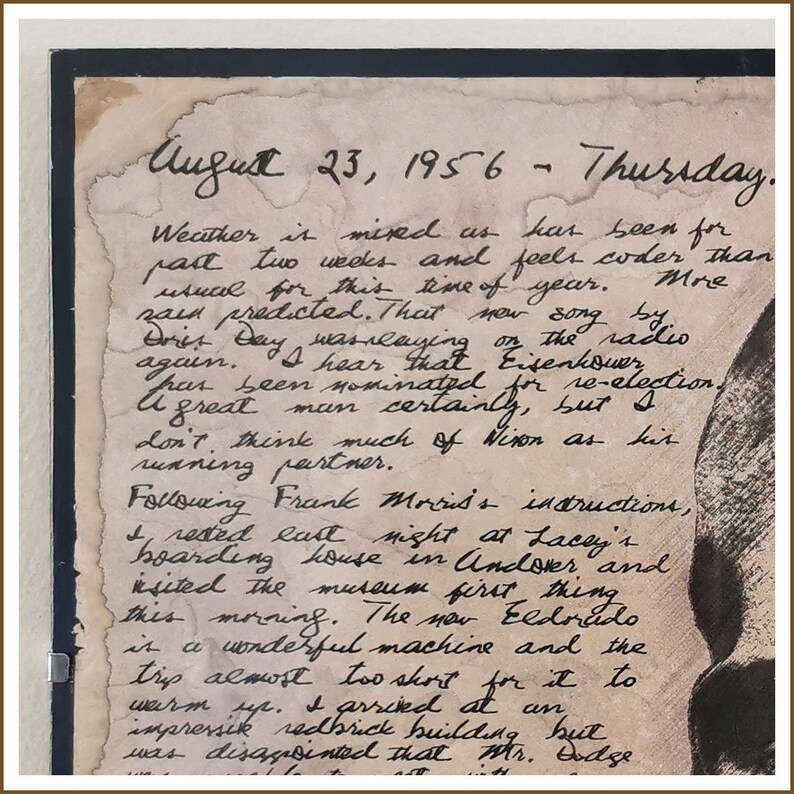 August 23, 1956 - Thursday.
Weather is mixed as has been for
past two weeks and feels cooler than
usual for this time of year. More
rain predicted. That new song by
Doris Day was playing on the radio
again. I hear that Eisenhower
has been nominated for re-election.
A great man certainly, but I
don't think much of Nixon as his
running partner.
Following Frank Morris's instructions,
I rested last night at Lacey's
boarding house in Andover and
visited the museum first thing
this morning. The new Eldorado
is a wonderful machine and the
trip almost too short for it to
warm up. I arrived at an
impressive redbrick building but
was disappointed that Mr. Dodge